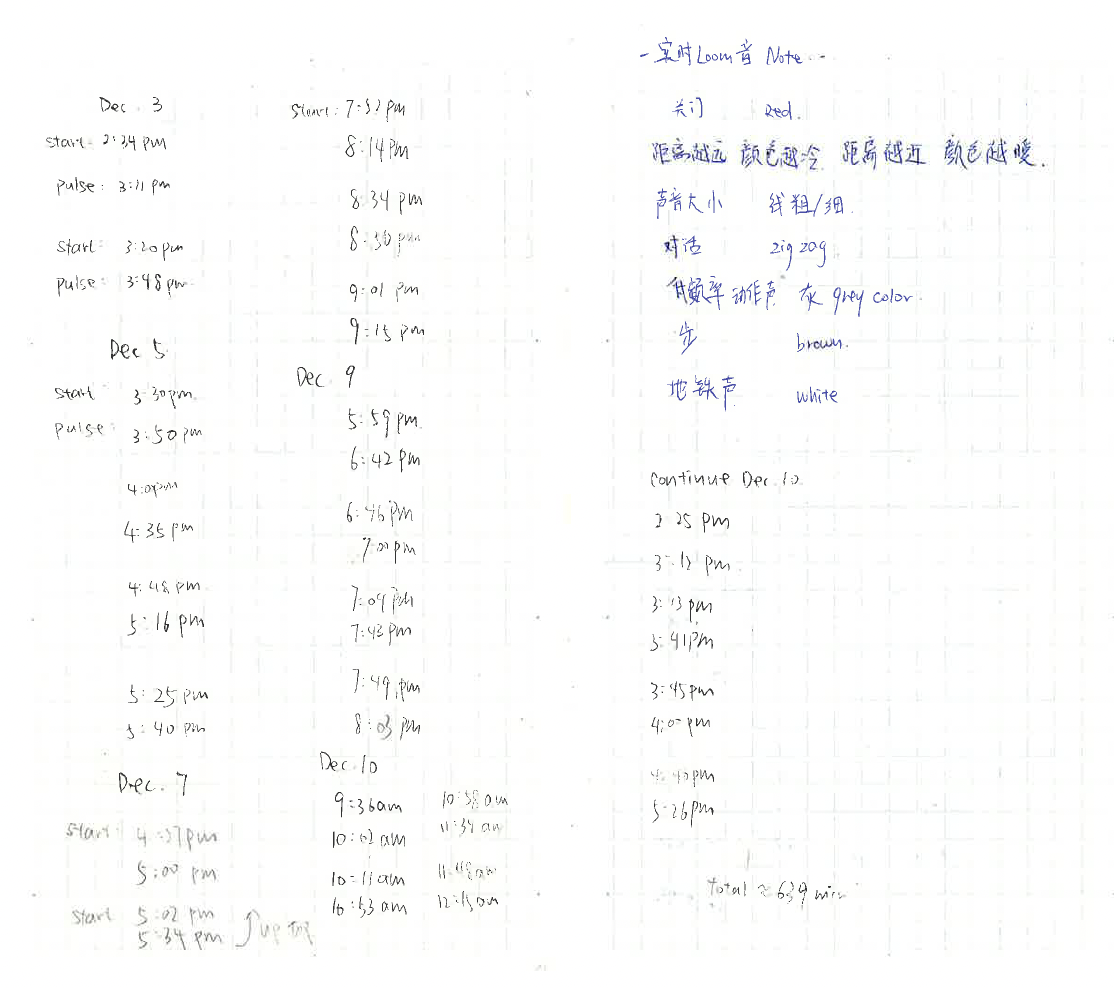 Dec. 3
start: 2:34 pm
pulse: 3:11 pm
start: 3:20 pm
pulse: 3:48 pm
Dec 5
start 3:30 pm
pulse: 3:50 pm
4:35 pm
4:48 pm
5:16 pm
5:25 pm
5:40 pm
Dec. 7
start 4:37pm
5:00 pm
start 5:02 pm
5:34 pm
up
start: 7:52 pm
8:14pm
8:34 pm
8:50 pm
9:01 pm
9:15 pm
Dec. 9
5:59 pm
6:42 pm
6:46 pm
7:00 pm
7:09 pm
7:43 pm
7:49 pm
8:03 pm
Dec. 10
9:36am
10:02 am
10:11am
10:53 am
10:58 am
11:34 am
11:48am
12:15am
- 实时Loom音 Note --
关门 Red.
距离越远 颜色越冷 距离越近 颜色越暖.
声音大小 线粗/细.
对话 zig zag.
频率动作声 灰 grey color.
步 brown.
地铁声 white
continue Dec. 10
2:25 pm
3:12 pm
3:13 pm
3:41pm
3:45pm
4:40pm
5:26pm
total ≈ 639 min